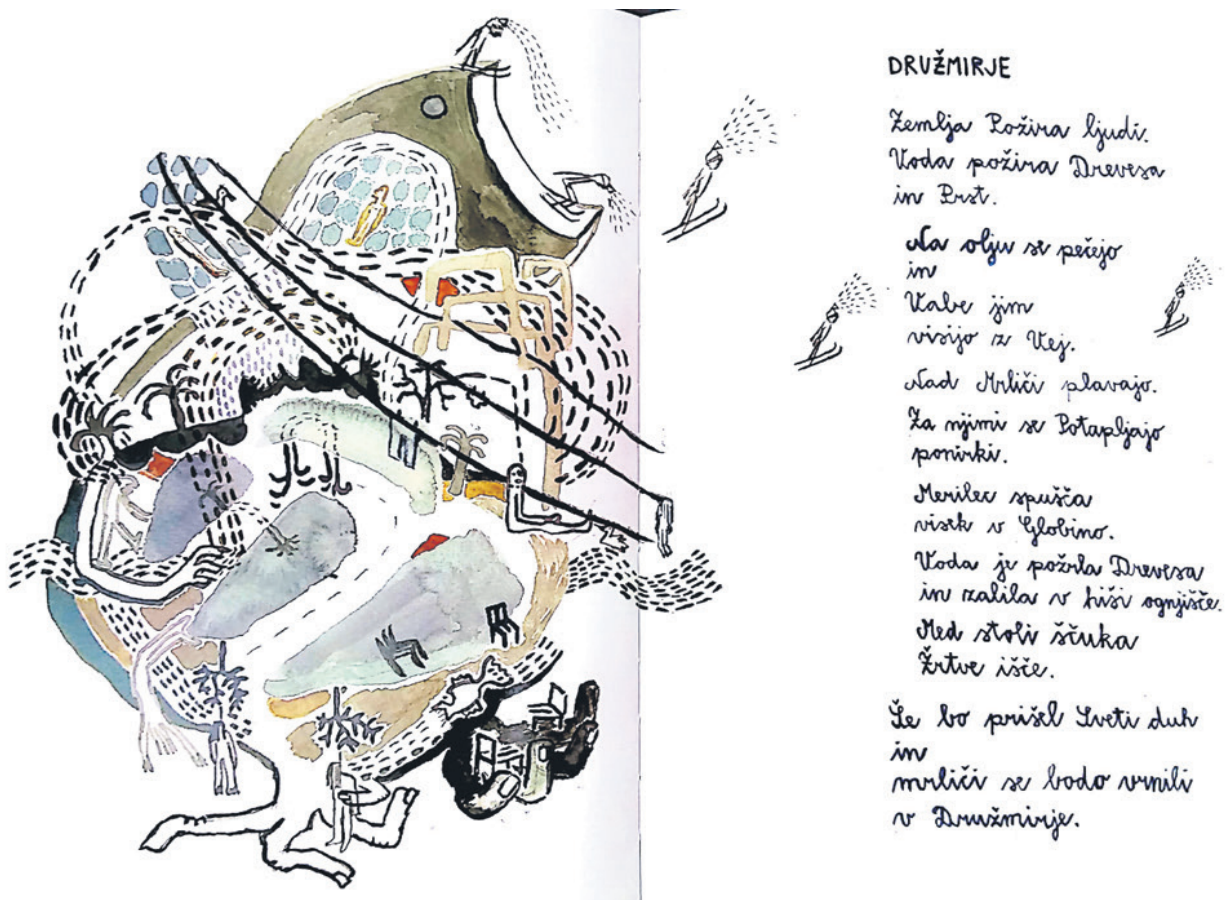 DRUŽMIRJE
Zemlja Požira ljudi.
Voda požira Drevesa
in Prst.
Na olju se pečejo
in
Vabe jim
visijo z Vej.
Nad Mrliči plavajo.
Za njimi se Potapljajo
ponirki.
Merilec spušča
visek v Globino.
Voda je požrla Drevesa
in zalila v hiši ognjišče.
Med stoli ščuka
Žrtve išče.
Še bo prišel Sveti duh
in
mrliči se bodo vrnili
v Družmirje.